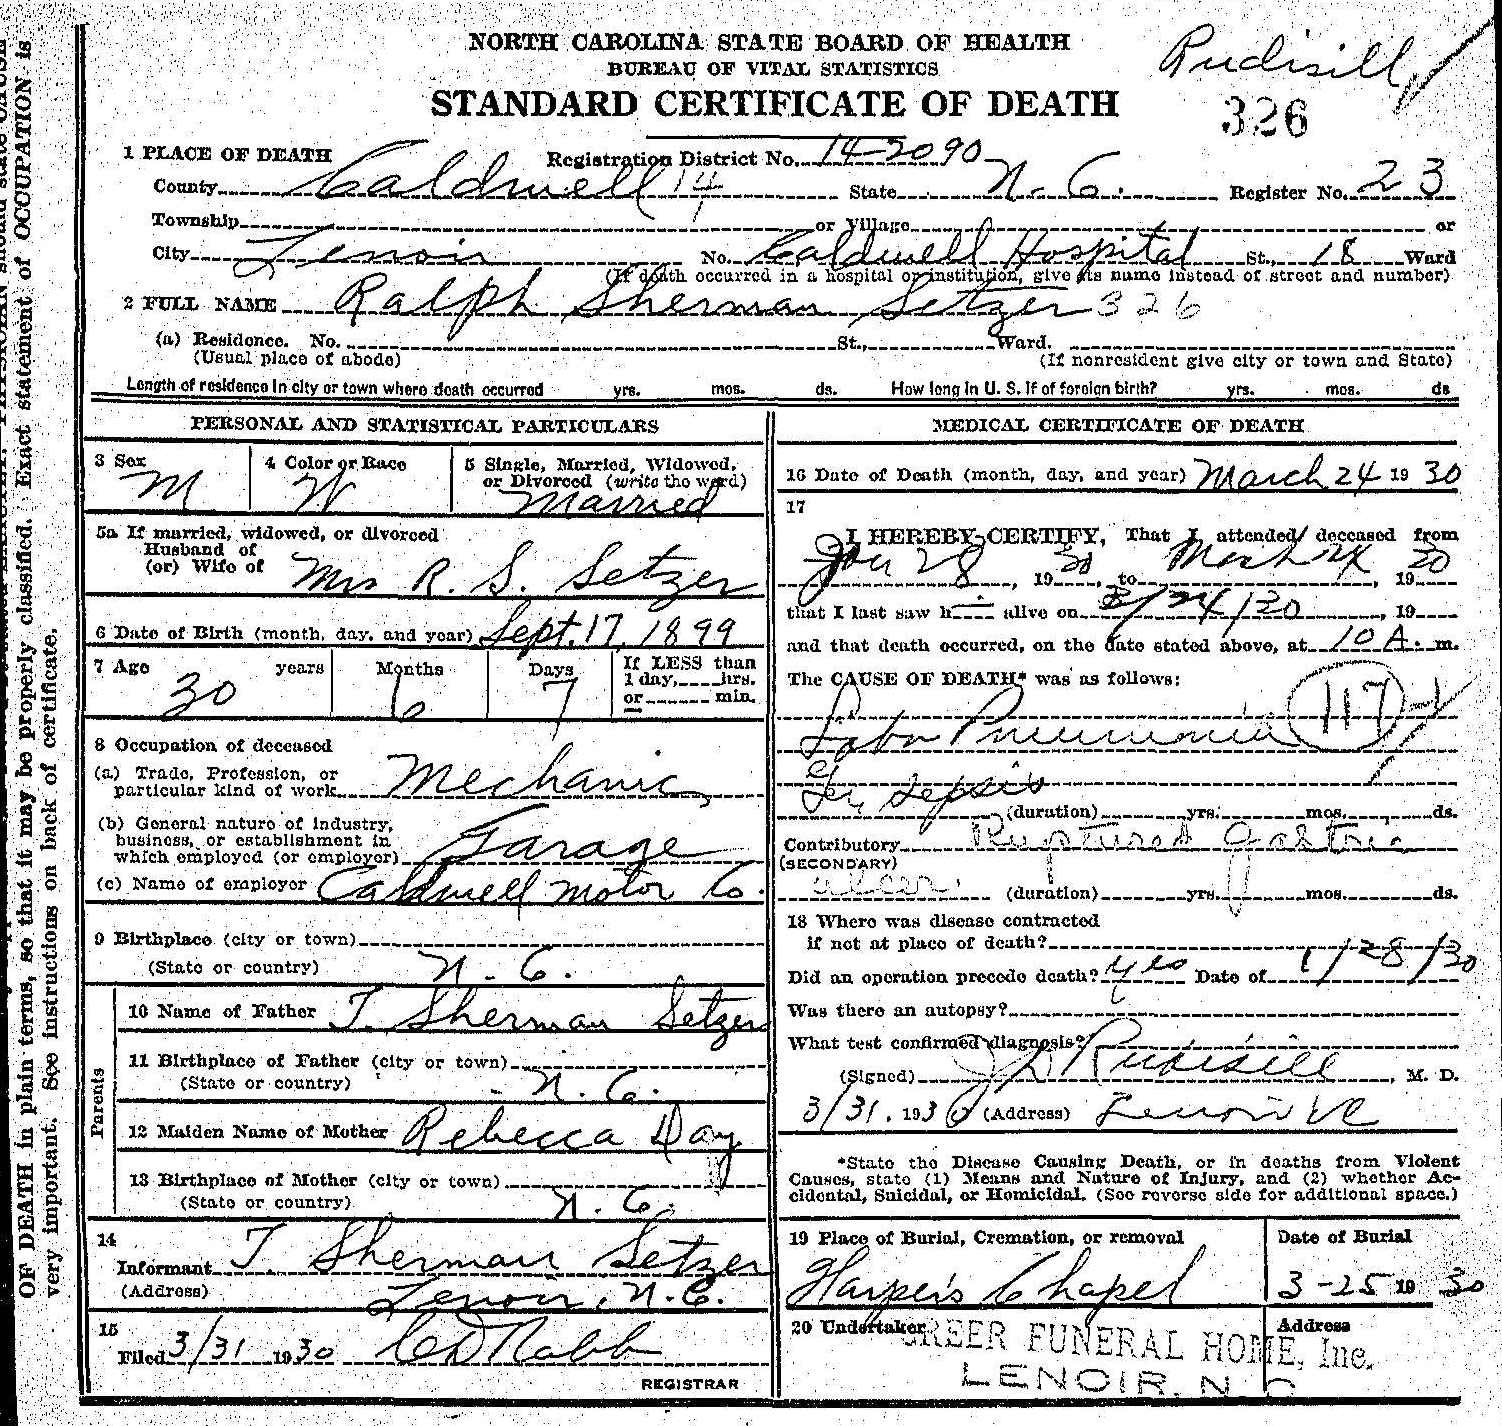 NORTH CAROLINA STATE BOARD OF HEALTH
BUREAU OF VITAL STATISTICS
STANDARD CERTIFICATE OF DEATH
Rudisill
326
1 PLACE OF DEATH Registration District No. 14-2090
County Caldwell 14 State N. C. Register No. 23
Township or Village or
City Lenoir No. Caldwell Hospital St., 18 Ward
(If death occurred in a hospital or institution, give its name instead of street and number)
2 FULL NAME Ralph Sherman Setzer 326
(a) Residence. No. St., Ward.
(Usual place of abode) (If nonresident give city or town and State)
Length of residence in city or town where death occurred yrs. mos. ds. How long in U. S. if of foreign birth? yrs. mos. ds
PERSONAL AND STATISTICAL PARTICULARS
3 Sex M
4 Color or Race W
5 Single, Married, Widowed,
or Divorced (write the word)
Married
5a If married, widowed, or divorced
Husband of
(or) Wife of Mrs R. S. Setzer
6 Date of Birth (month, day, and year) Sept. 17, 1899
7 Age 30 years Months 6 Days 7
If LESS than
1 day, hrs.
or min.
8 Occupation of deceased
(a) Trade, Profession, or
particular kind of work Mechanic
(b) General nature of industry,
business, or establishment in
which employed (or employer) Garage
(c) Name of employer Caldwell Motor Co.
9 Birthplace (city or town)
(State or country) N. C.
Parents
10 Name of Father T. Sherman Setzer
11 Birthplace of Father (city or town)
(State or country) N. C.
12 Maiden Name of Mother Rebecca Day
13 Birthplace of Mother (city or town)
(State or country) N. C.
14
Informant T. Sherman Setzer
(Address) Lenoir, N. C.
15
Filed 3/31 1930
REGISTRAR
MEDICAL CERTIFICATE OF DEATH
16 Date of Death (month, day, and year) March 24 1930
17
I HEREBY CERTIFY, That I attended deceased from
Jan 28, 1930, to March 24, 1930
that I last saw h alive on 3/24/30, 19
and that death occurred, on the date stated above, at 10 A. m.
The CAUSE OF DEATH* was as follows:
Lobar Pneumonia 117
sepsis
(duration) yrs. mos. ds.
Contributory Ruptured gastric
(SECONDARY)
ulcer. (duration) yrs. mos. ds.
18 Where was disease contracted
if not at place of death?
Did an operation precede death? yes Date of 1/28/30
Was there an autopsy?
What test confirmed diagnosis?
(Signed) Rudisill, M. D.
3/31, 1930 (Address) Lenoir NC
*State the Disease Causing Death, or in deaths from Violent
Causes, state (1) Means and Nature of Injury, and (2) whether Ac-
cidental, Suicidal, or Homicidal. (See reverse side for additional space.)
19 Place of Burial, Cremation, or removal
Harper's Chapel
Date of Burial
3-25 1930
20 Undertaker Address
GREER FUNERAL HOME, Inc.
LENOIR, N. C.
OF DEATH in plain terms, so that it may be properly classified. Exact statement of OCCUPATION is
very important. See instructions on back of certificate.